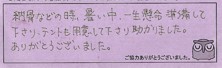 納骨などの時、暑い中、一生懸命準備して
下さり、テントも用意して下さり助かりました。
ありがとうございました。
ご協力ありがとうございました。